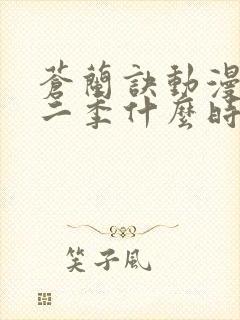 蒼蘭訣動漫
二季什麼時
笑子風